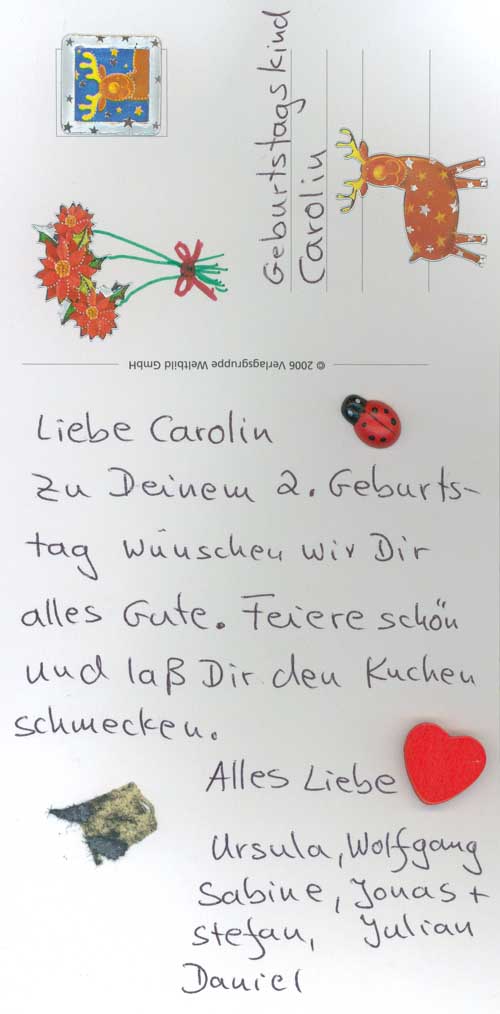 Geburtstagskind
Carolin
© 2006 Verlagsgruppe Weltbild GmbH
Liebe Carolin
Zu Deinem 2. Geburts-
tag wünschen wir Dir
alles Gute. Feiere schön
und laß Dir den Kuchen
schmecken.
Alles Liebe
Ursula, Wolfgang
Sabine, Jonas +
Stefan, Julian
Daniel